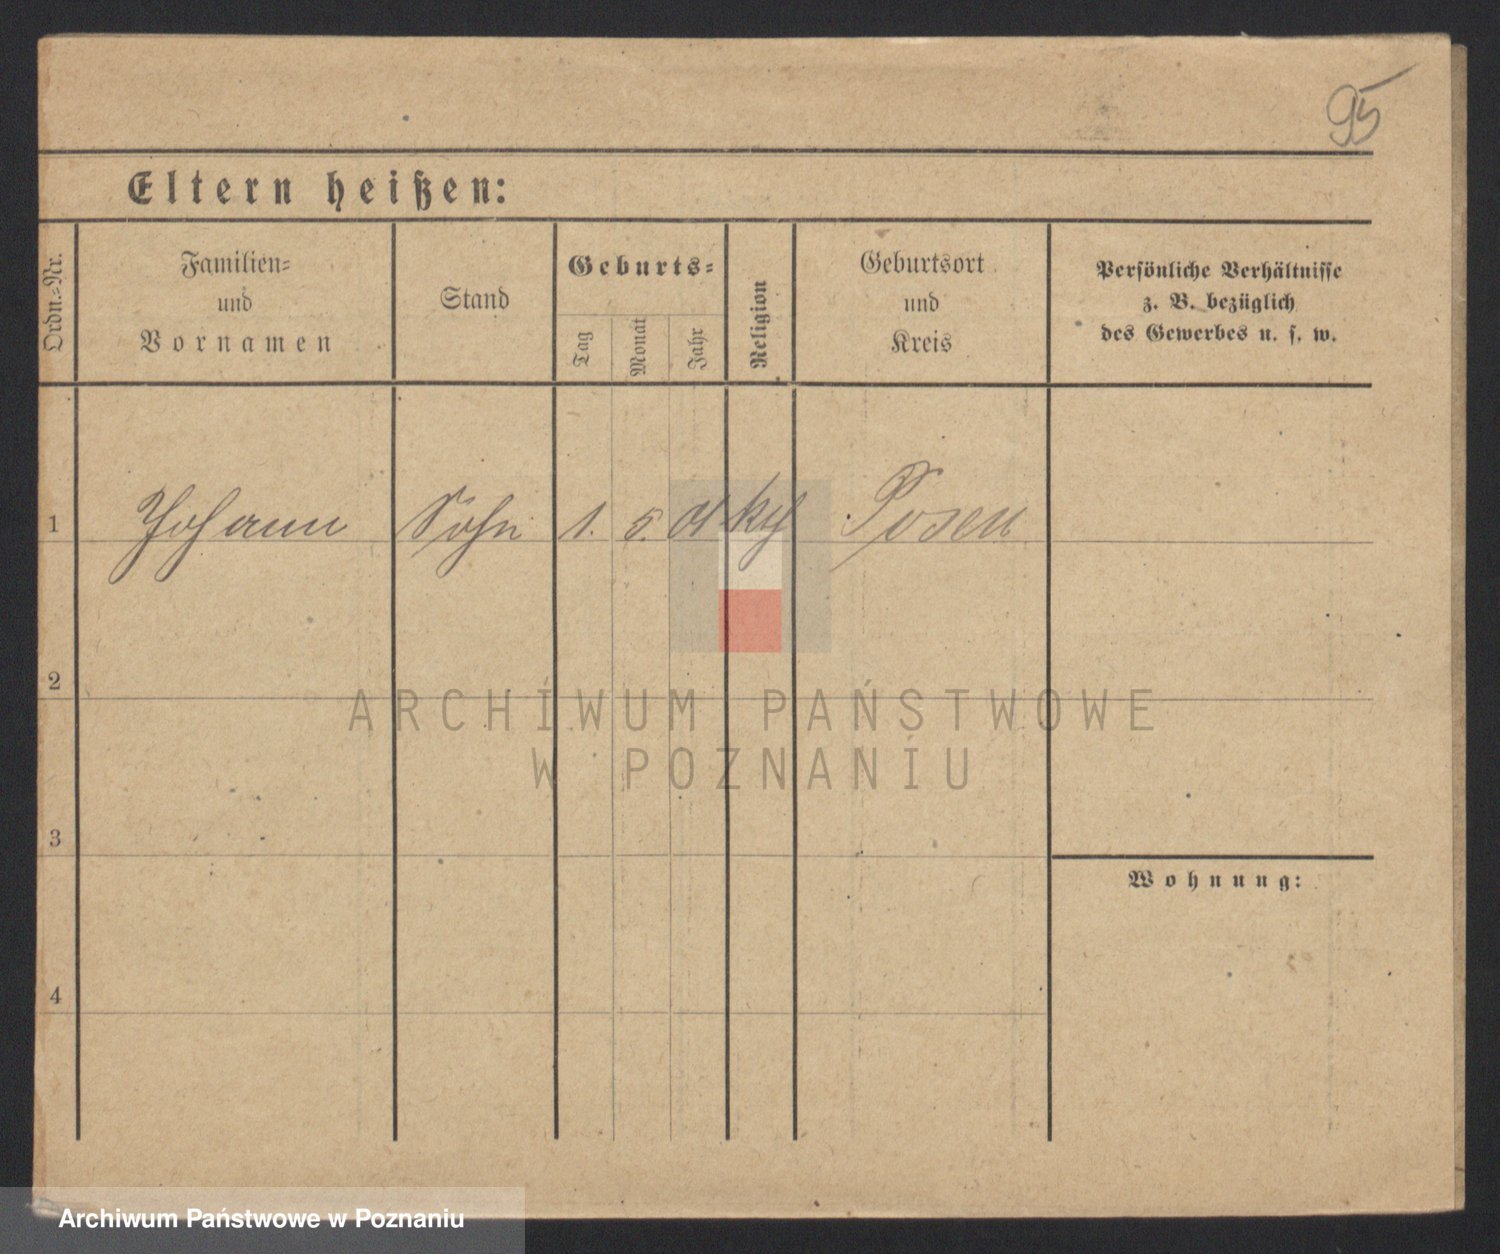 95
Eltern heißen:
Ordn.-Nr.
Familien-
und
Vornamen
Stand
Geburts-
Tag
Monat
Jahr
Religion
Geburtsort
und
Kreis
Persönliche Verhältnisse
z. B. bezüglich
des Gewerbes u. s. w.
1 Johann Sohn 1. 5. 01 kth Posen
2
ARCHIWUM PAŃSTWOWE
W POZNANIU
3
Wohnung:
4
Archiwum Państwowe w Poznaniu